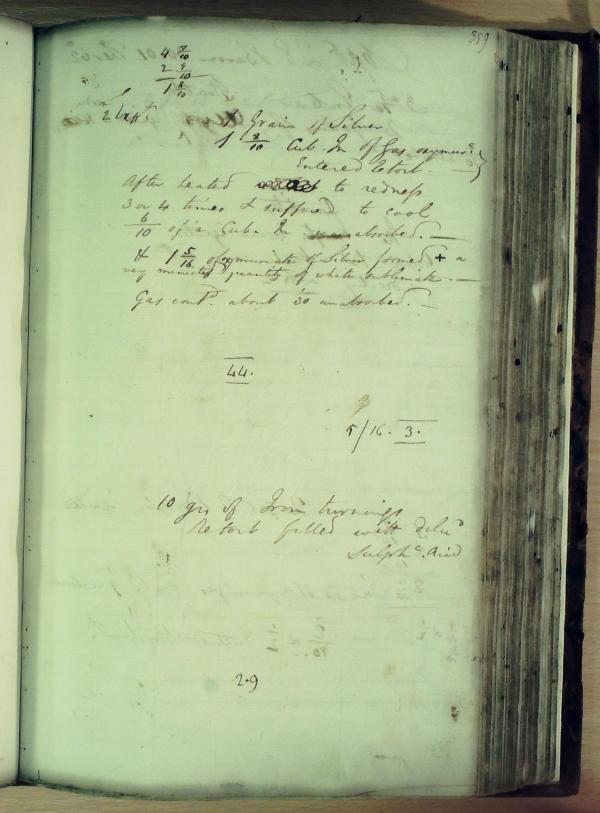 359
4 7/10
2 9/10
1 8/10
2 Expt.
Grain of Silver
1 8/10 Cub. In of Gas oxymurc.
Entered Retort.
After heated to redness
3 or 4 times & suffered to cool
6/10 of a Cub. In absorbed. —
& 1 5/16 of muriate of Silver formed + a
very minute quantity of white sublimate. —
Gas contd. about 1/30 unabsorbed. —
44.
5/16. 3.
10 grs of Iron turnings
Retort filled with dilud
Sulphc. Acid
2.9